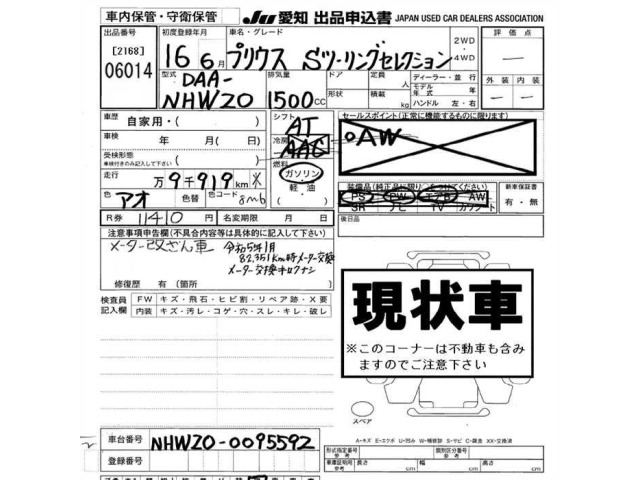 車内保管・守衛保管
JU 愛知 出品申込書 JAPAN USED CAR DEALERS ASSOCIATION
出品番号
[2168]
06014
初度登録年月
16 6月
車名・グレード
プリウス Sツーリングセレクション
2WD
・
4WD
評価点
—
型式
DAA-
NHW20
排気量
1500cc
ドア
形状
定員 人
積載 kg
ディーラー・並行
モデル
年式 年
ハンドル 左・右
外装 内装
— —
車歴 自家用・( )
車検 年 月( 日)
受検形態
車検付きのみ記入して下さい ( )
走行 万9千919km
色 アオ 色替 色コード 8M6
シフト AT
冷房 AAC
燃料 ガソリン・軽・油
セールスポイント(正常に機能するものに限ります)
AW
装備品(純正品に限り)をつけてください
PS PW エアB AW
SR ナビ TV カワシート
新車保証書
有・無
R券 11410円 名変期限 月 日
後日品
注意事項申告欄(不具合内容等は具体的に記入して下さい)
メーター改ざん車
令和5年1月
82,351km時メーター交換
メーター交換キロクナシ
修復歴 有(箇所 )
検査員
記入欄
FW キズ・飛石・ヒビ割・リペア跡・X要
内装 キズ・汚レ・コゲ・穴・スレ・キレ・破レ
現状車
※このコーナーは不動車も含み
ますのでご注意下さい
スペア
A-キズ E-エクボ U-凹み W-補修跡 S-サビ C-腐食 XX-交換済
車台番号 NHW20-0095592
登録番号
形式指定番号
参考
個別区分番号
参考
車庫証明用
参考
長さ cm 幅 cm 高さ cm